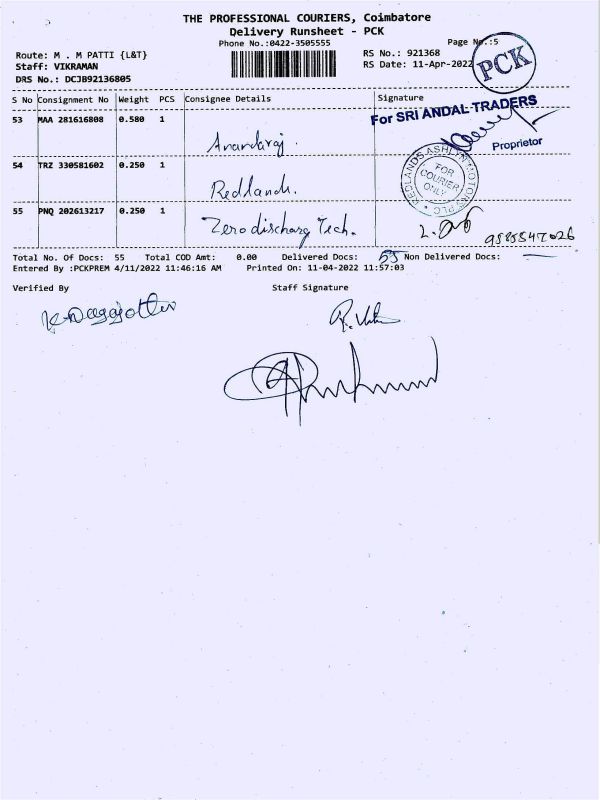 THE PROFESSIONAL COURIERS, Coimbatore
Delivery Runsheet - PCK
Phone No.:0422-3505555
Page No.:5
Route: M . M PATTI {L&T}
RS No.: 921368
Staff: VIKRAMAN
RS Date: 11-Apr-2022
DRS No.: DCJB92136805
PCK
S No Consignment No Weight PCS Consignee Details Signature
53 MAA 281616808 0.580 1 Anandaraj.
For SRI ANDAL TRADERS
Proprietor
54 TRZ 330581602 0.250 1 Redlands.
REDLANDS ASHLYN MOTORS PLC
FOR
COURIER
ONLY
55 PNQ 202613217 0.250 1 Zero discharg Tech.
Total No. Of Docs: 55 Total COD Amt: 0.00 Delivered Docs: 55 Non Delivered Docs: —
Entered By :PCKPREM 4/11/2022 11:46:16 AM Printed On: 11-04-2022 11:57:03
Verified By Staff Signature